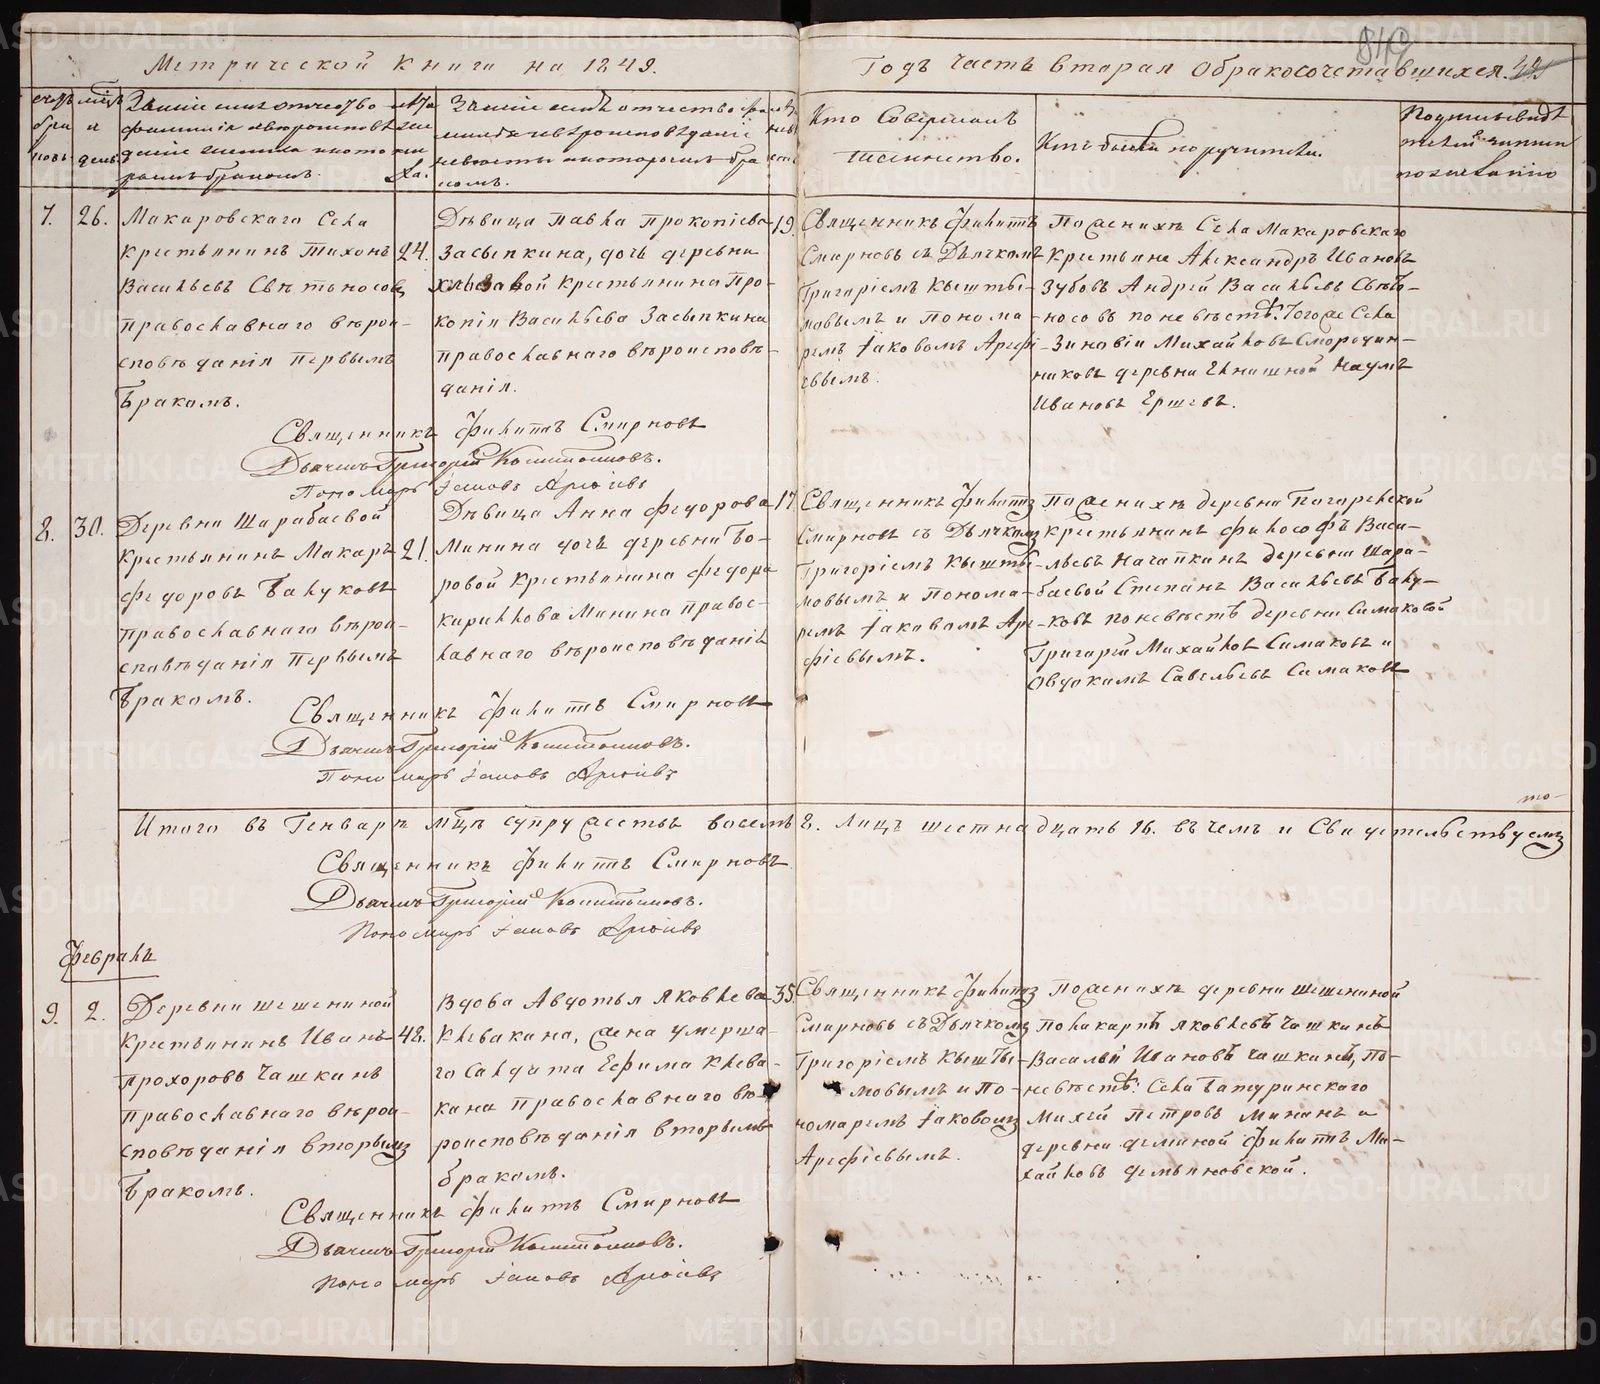 Метрической книги на 1849.
Годъ часть вторая о бракосочетавшихся.
849
счетъ браковъ
мѣцъ и день
Званіе имя отчество
фамилія и вѣроисповѣ
даніе жениха и кото
рымъ бракомъ.
лѣта жениха.
Званіе имя отчество фа
милія и вѣроисповѣданіе
невѣсты и которымъ бра
комъ.
лѣта невѣсты
Кто Совершалъ
таинство.
Кто были поручители.
Подпись свидѣ
телей записи
по желанію
7.
26.
Макаровскаго Села
крестьянинъ Тихонъ
Васильевъ Свѣтоносовъ
православнаго вѣрои-
сповѣданія первымъ
бракомъ.
24.
Дѣвица Павла Прокопіева
Засыпкина, дочь деревни
крестьянина Про-
копія Васильева Засыпкина
православнаго вѣроисповѣ-
данія.
19.
Священникъ Филиппъ
Смирновъ съ Дьячкомъ
Григоріемъ Кышты-
мовымъ и Понома-
ремъ Іаковомъ Арефі-
евымъ.
По женихѣ Села Макаровскаго
крестьяне Александръ Ивановъ
Зубовъ Андрей Васильевъ Свѣто-
носовъ по невѣстѣ: Тогоже Села
Зиновій Михайловъ Смородин-
никовъ деревни Наумъ
Ивановъ Ершевъ.
Священникъ Филиппъ Смирновъ
Дьячекъ Григорій Кыштымовъ.
Пономарь Іаковъ Арефіевъ
8.
30.
Деревни Шарабаевой
крестьянинъ Макаръ
Федоровъ Балуковъ
православнаго вѣрои-
сповѣданія первымъ
бракомъ.
21.
Дѣвица Анна Федорова
Минина дочь деревни Бо-
ровой крестьянина Федора
Кириллова Минина правос-
лавнаго вѣроисповѣданія
17
Священникъ Филиппъ
Смирновъ съ Дьячкомъ
Григоріемъ Кышты-
мовымъ и Понома-
ремъ Іаковомъ Аре-
фіевымъ.
По женихѣ деревни Погорельской
крестьянинъ Философъ Васи-
льевъ Начапкинъ деревни Шара-
баевой Степанъ Васильевъ Балу-
ковъ по невѣстѣ деревни Симаковой
Григорій Михайловъ Симаковъ и
Овдокимъ Савельевъ Симаковъ
Священникъ Филиппъ Смирновъ
Дьячекъ Григорій Кыштымовъ.
Пономарь Іаковъ Арефіевъ
то-
Итого въ Генварѣ мцѣ супружествъ восемь 8. Лицъ шестнадцать 16. въ чемъ и Свидетельствуемъ
Священникъ Филиппъ Смирновъ
Дьячекъ Григорій Кыштымовъ.
Пономарь Іаковъ Арефіевъ
Февраль
9.
2.
Деревни Шешениной
крестьянинъ Иванъ
Прохоровъ Чашкинъ
православнаго вѣрои-
сповѣданія вторымъ
бракомъ.
48.
Вдова Авдотья Яковлева
Клевакина, жена умерша-
го Салдата Ефима Клева-
кина православнаго вѣ-
роисповѣданія вторымъ
бракомъ.
35.
Священникъ Филиппъ
Смирновъ съ Дьячкомъ
Григоріемъ Кышты-
мовымъ и По-
номаремъ Іаковомъ
Арефіевымъ.
По женихѣ деревни Шешениной
Поликарпъ Яковлевъ Чашкинъ
Василій Ивановъ Чашкинъ, По-
невѣстѣ: Села Батуринскаго
Михей Петровъ Мининъ и
деревни Деминой Филиппъ Ми-
хайловъ Демьяновской.
Священникъ Филиппъ Смирновъ
Дьячекъ Григорій Кыштымовъ.
Пономарь Іаковъ Арефіевъ
METRIKI.GASO-URAL.RU